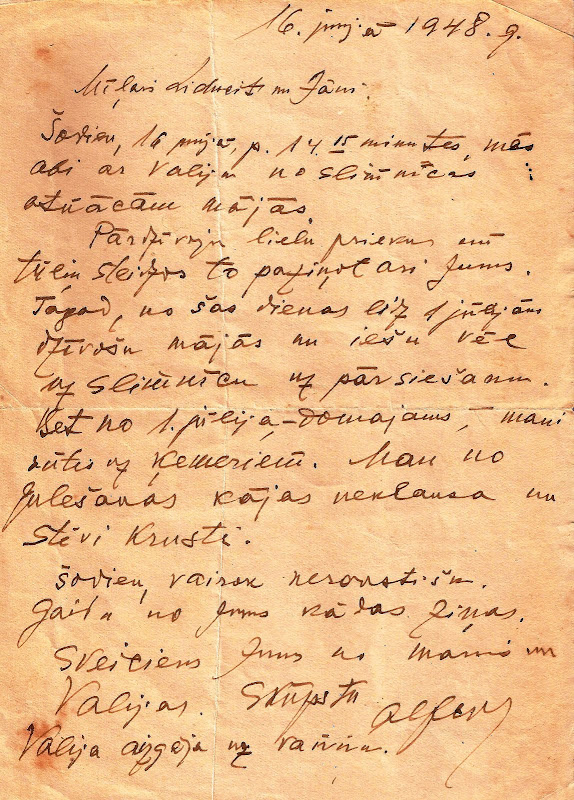 16. junijā 1948. g.
Mīļari Lidweit un Jāni.
Šodien, 16 junijā, p. 14 15 minutes, mēs
abi ar Valiju no slimnīcas
atnācām mājās.
Pārdzīvoju lielu prieku un
tūlin steidzos to paziņot ari Jums.
Tagad, no šās dienas līdz 1 jūlijam
dzīvošu mājās un iešu vēl
uz slimnīcu uz pārsiešanu.
Bet no 1. jūlija, - domājams, - mani
sūtīs uz Ķemeriem. Man no
gulēšanas kājas neklausa un
stīvi krusti.
Šodien, vairāk nerakstīšu.
Gaidu no Jums kādas ziņas.
Sveiciens Jums no manis un
Valijas. Skūpstu
Valija aizgāja uz vannu.